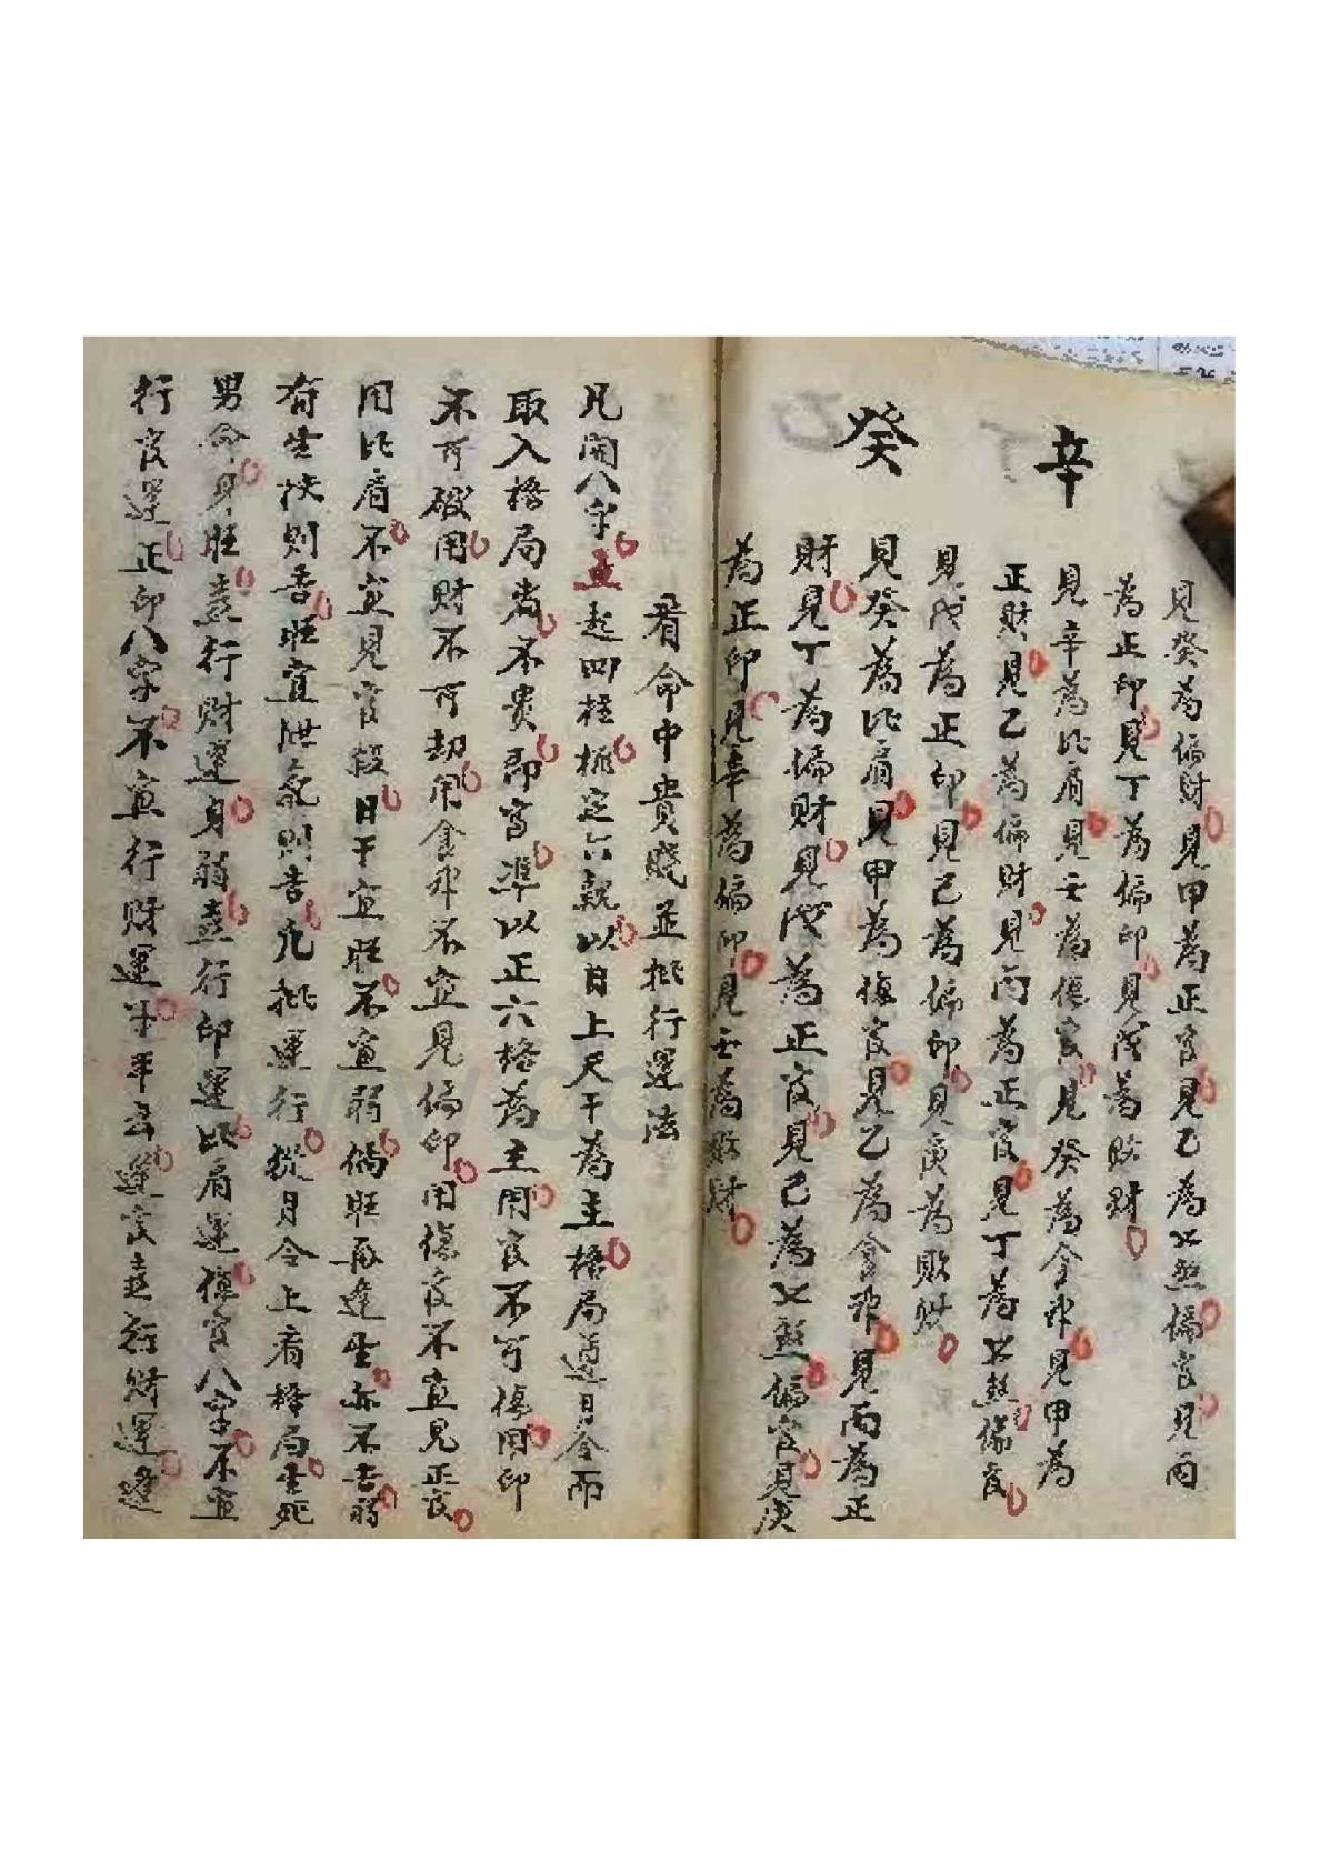 見癸為偏財見甲為正官見乙為七煞偏官見丙
為正印見丁為偏印見戊為敗財
辛
見辛為比肩見壬為傷官見癸為食神見甲為
正財見乙為偏財見丙為正官見丁為七煞偏官
見戊為正印見己為偏印見庚為敗財
癸
見癸為比肩見甲為傷官見乙為食神見丙為正
財見丁為偏財見戊為正官見己為七煞偏官見庚
為正印見辛為偏印見壬為敗財
看命中貴賤並批行運法
凡開八字直起四柱挑定六親以日上天干為主格局遵月令而
取入格局者不貴即富準以正六格為主用官不可傷用印
不可破用財不可劫用食神不宜見偏印用傷官不宜見正官
用比肩不宜見官殺日干宜旺不宜弱倘旺再逢生亦不吉弱
有生扶則吉旺宜泄氣則吉凡批運行從月令上看格局生死
男命身旺喜行財運身弱喜行印運比肩運傷官八字不宜
行官運正印八字不宜行財運少年去逢官喜行財運逢